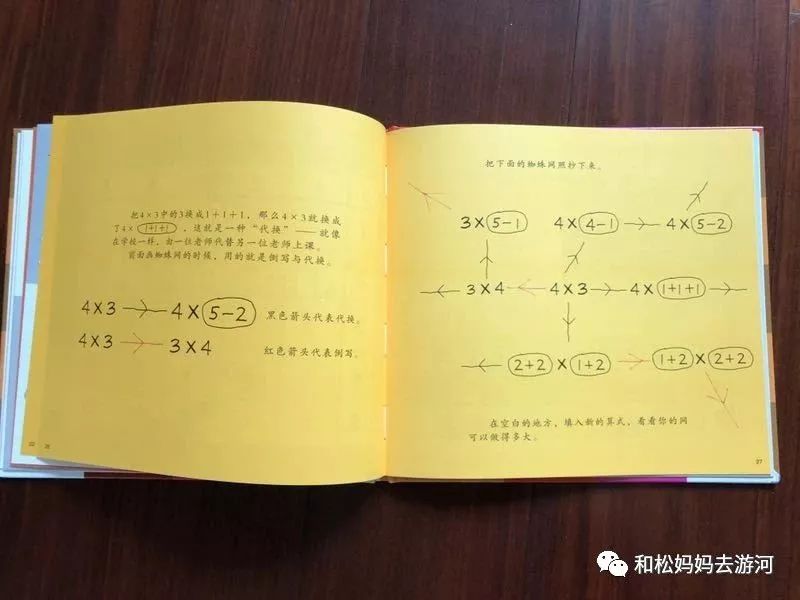 把4×3中的3换成1+1+1，那么4×3就换成
了4×(1+1+1)，这就是一种“代换”——就像
在学校一样，由一位老师代替另一位老师上课。
前面画蜘蛛网的时候，用的就是倒写与代换。
4×3 → 4×(5-2) 黑色箭头代表代换。
4×3 → 3×4 红色箭头代表倒写。
26
把下面的蜘蛛网照抄下来。
3×(5-1) 4×(4-1) → 4×(5-2)
← 3×4 ← 4×3 → 4×(1+1+1) →
← (2+2)×(1+2) → (1+2)×(2+2)
在空白的地方，填入新的算式，看看你的网
可以做得多大。
27
和松妈妈去游河